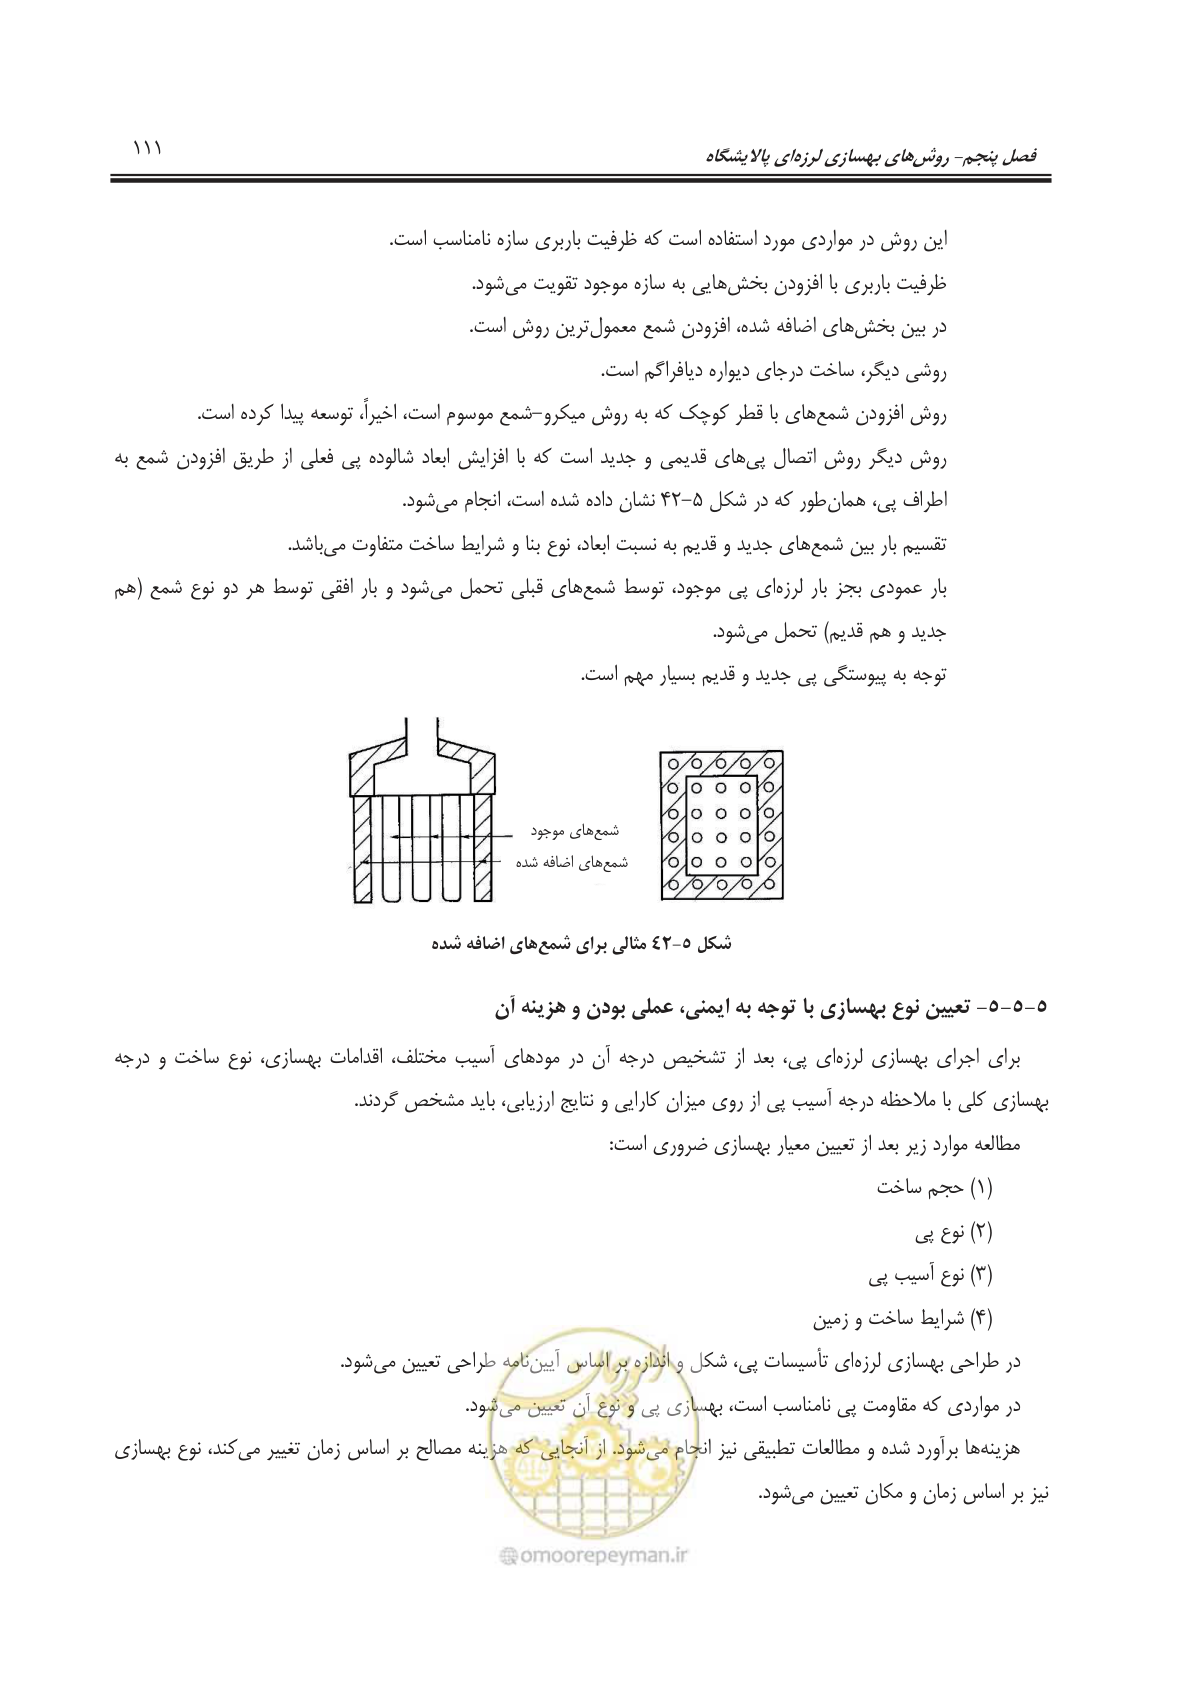 فصل پنجم- روش‌های بهسازی لرزه‌ای پالایشگاه
۱۱۱
این روش در مواردی مورد استفاده است که ظرفیت باربری سازه نامناسب است.
ظرفیت باربری با افزودن بخش‌هایی به سازه موجود تقویت می‌شود.
در بین بخش‌های اضافه شده، افزودن شمع معمول‌ترین روش است.
روشی دیگر، ساخت درجای دیواره دیافراگم است.
روش افزودن شمع‌های با قطر کوچک که به روش میکرو-شمع موسوم است، اخیراً، توسعه پیدا کرده است.
روش دیگر روش اتصال پی‌های قدیمی و جدید است که با افزایش ابعاد شالوده پی فعلی از طریق افزودن شمع به
اطراف پی، همان‌طور که در شکل ۵-۴۲ نشان داده شده است، انجام می‌شود.
تقسیم بار بین شمع‌های جدید و قدیم به نسبت ابعاد، نوع بنا و شرایط ساخت متفاوت می‌باشد.
بار عمودی بجز بار لرزه‌ای پی موجود، توسط شمع‌های قبلی تحمل می‌شود و بار افقی توسط هر دو نوع شمع (هم
جدید و هم قدیم) تحمل می‌شود.
توجه به پیوستگی پی جدید و قدیم بسیار مهم است.
شمع‌های موجود
شمع‌های اضافه شده
شکل ۵-۴۲ مثالی برای شمع‌های اضافه شده
۵-۵-۵- تعیین نوع بهسازی با توجه به ایمنی، عملی بودن و هزینه آن
برای اجرای بهسازی لرزه‌ای پی، بعد از تشخیص درجه آن در مودهای آسیب مختلف، اقدامات بهسازی، نوع ساخت و درجه
بهسازی کلی با ملاحظه درجه آسیب پی از روی میزان کارایی و نتایج ارزیابی، باید مشخص گردند.
مطالعه موارد زیر بعد از تعیین معیار بهسازی ضروری است:
(۱) حجم ساخت
(۲) نوع پی
(۳) نوع آسیب پی
(۴) شرایط ساخت و زمین
در طراحی بهسازی لرزه‌ای تأسیسات پی، شکل و اندازه بر اساس آیین‌نامه طراحی تعیین می‌شود.
در مواردی که مقاومت پی نامناسب است، بهسازی پی و نوع آن تعیین می‌شود.
هزینه‌ها برآورد شده و مطالعات تطبیقی نیز انجام می‌شود. از آنجایی که هزینه مصالح بر اساس زمان تغییر می‌کند، نوع بهسازی
نیز بر اساس زمان و مکان تعیین می‌شود.
امور پیمان
@omoorepeyman.ir